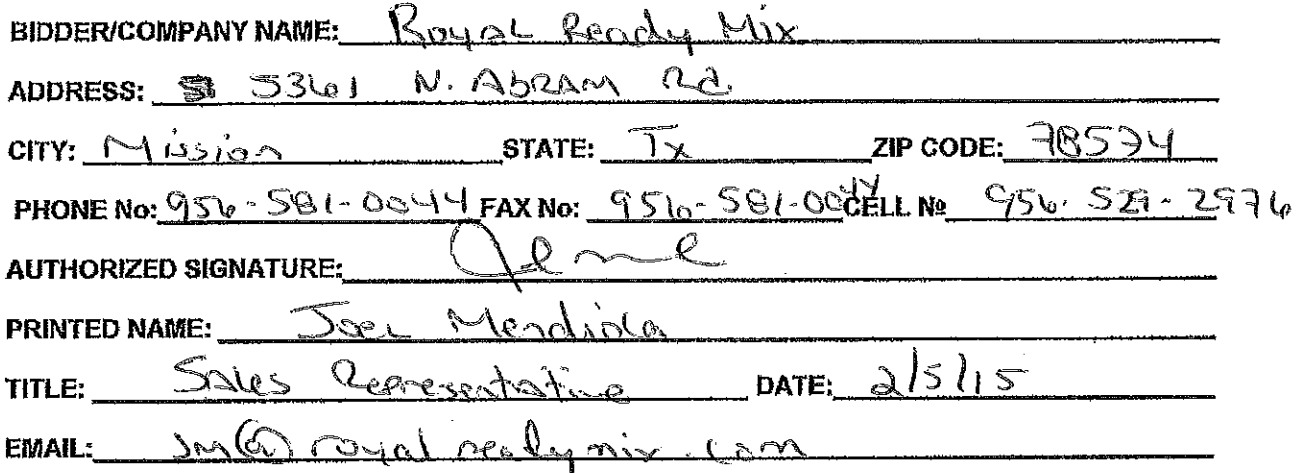 BIDDER/COMPANY NAME: Royal Ready Mix
ADDRESS: 5361 N. Abram Rd.
CITY: Mission STATE: Tx ZIP CODE: 78574
PHONE No: 956-581-0044 FAX No: 956-581-0044 CELL № 956-
AUTHORIZED SIGNATURE:
PRINTED NAME: Joel Mendiola
TITLE: Sales Representative DATE: 2/5/15
EMAIL: jm@royalreadymix.com